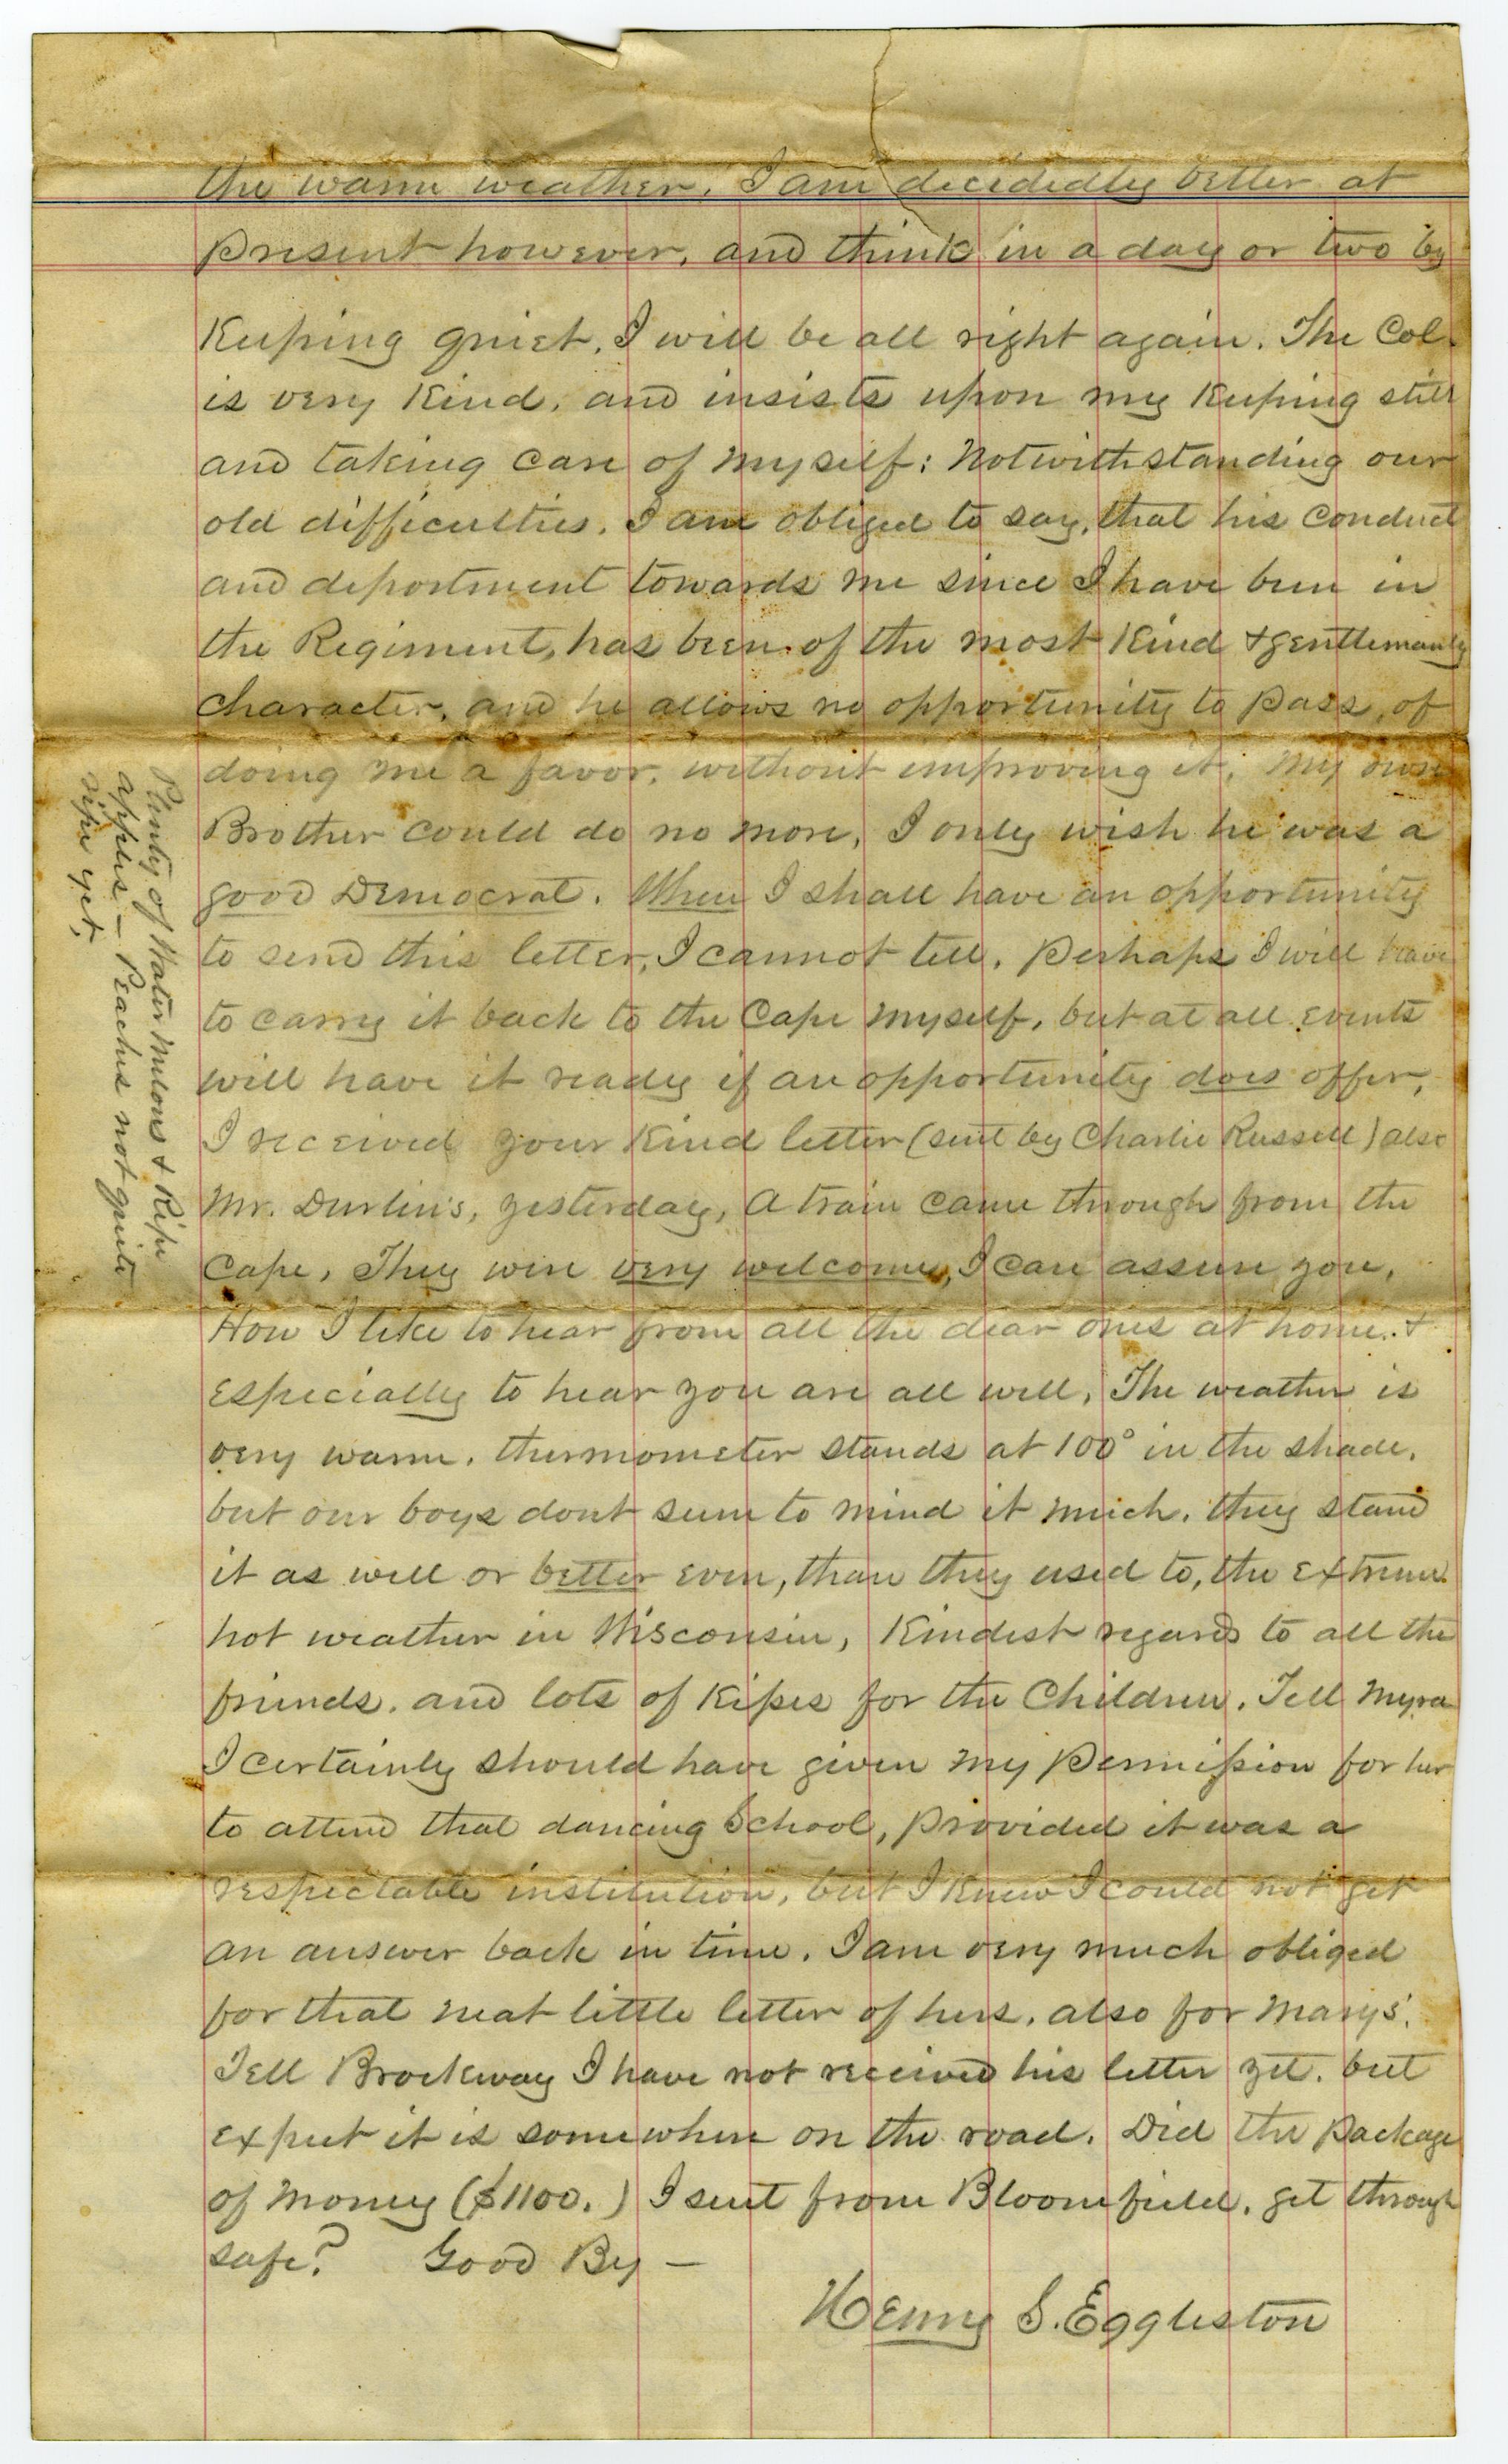 the warm weather. I am decidedly better at
present however, and think in a day or two by
Keeping quiet, I will be all right again. The Col.
is very Kind, and insists upon my Keeping still
and taking care of myself: Notwithstanding our
old difficulties, I am obliged to say, that his conduct
and deportment towards me since I have been in
the Regiment, has been of the most Kind & gentlemanly
character, and he allows no opportunity to pass, of
doing me a favor, without improving it. My own
Brother could do no more, I only wish he was a
good Democrat. When I shall have an opportunity
to send this letter, I cannot tell. Perhaps I will have
to carry it back to the Cape myself, but at all events
will have it ready if an opportunity does offer,
I received your Kind letter (sent by Charlie Russell) also
Mr. Durlin's, yesterday, A train came through from the
Cape, They were very welcome, I can assure you,
How I like to hear from all the dear ones at home. &
especially to hear you are all well, The weather is
very warm. thermometer stands at 100° in the shade.
but our boys dont seem to mind it much. they stand
it as well or better even, than they used to, the extreme
hot weather in Wisconsin, Kindest regards to all the
friends. and lots of Kisses for the Children. Tell Myra
I certainly should have given my Permission for her
to attend that dancing School, provided it was a
respectable institution, but I knew I could not get
an answer back in time. I am very much obliged
for that neat little letter of hers. also for Marys'.
Tell Brockway I have not received his letter yet. but
expect it is somewhere on the road. Did the package
of Money ($1100.) I sent from Bloomfield, get through
safe? Good By —
Henry S. Eggleston
Plenty of Water Melons & Ripe
apples — Peaches not quite
ripe yet.